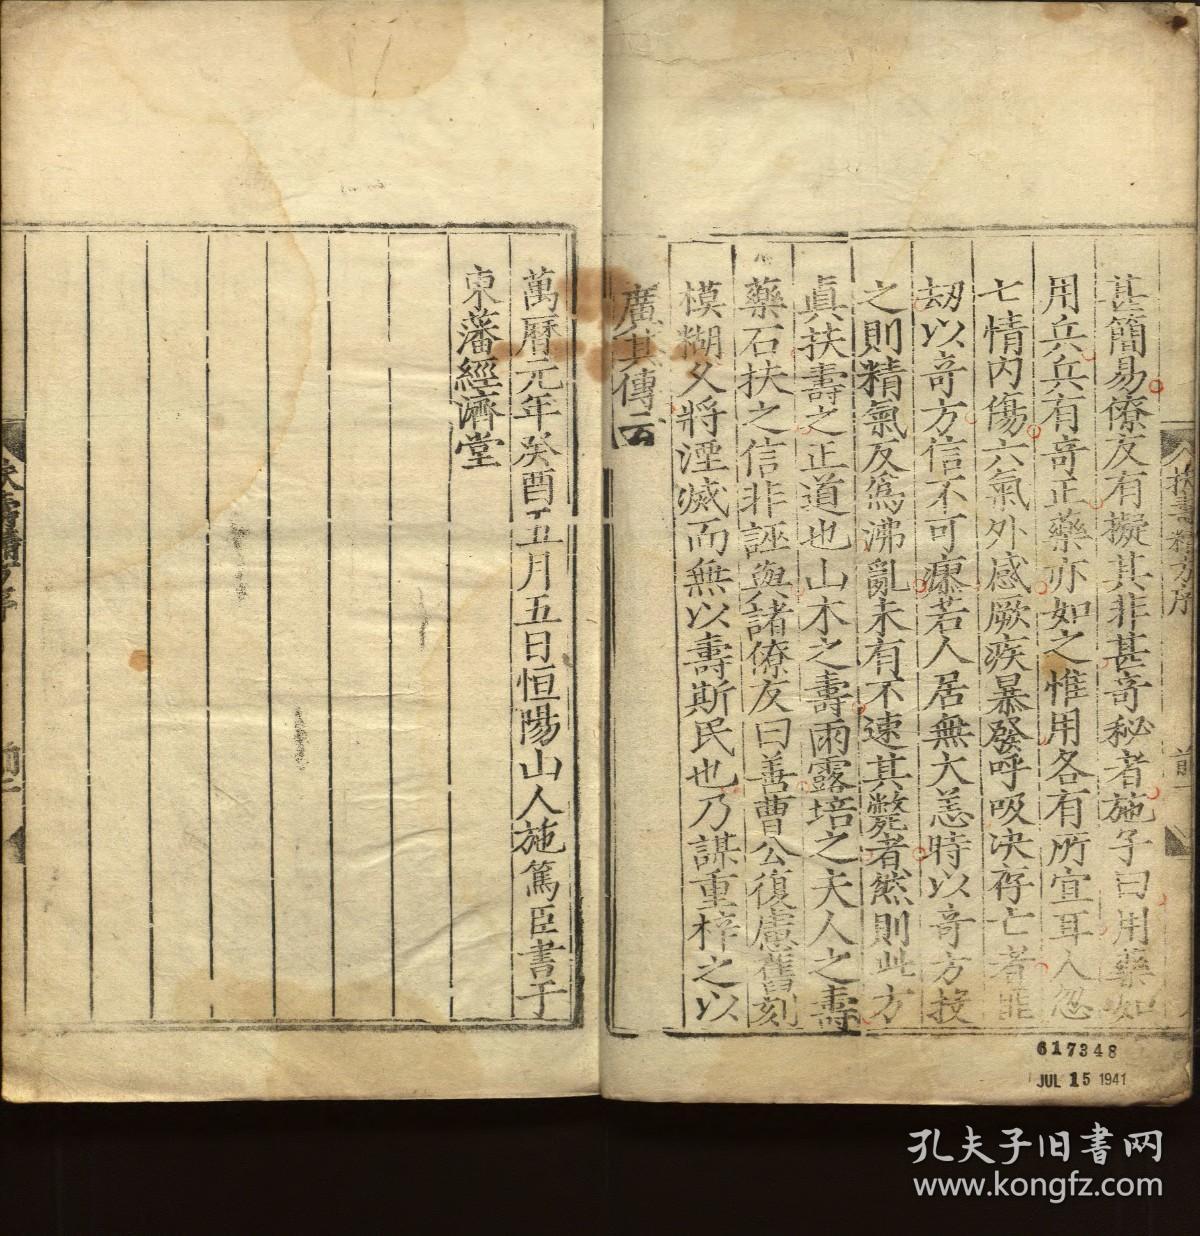 甚簡易僚友有擬其非甚竒秘者施子曰用藥如
用兵兵有竒正藥亦如之惟用各有所宜耳人忽
七情内傷六氣外感厥疾暴發呼吸决存亡者非
刼以竒方信不可療若人居無大恙時以竒方投
之則精氣反爲沸亂未有不速其斃者然則此方
眞扶壽之正道也山木之壽雨露培之夫人之壽
藥石扶之信非誣與諸僚友曰善曹公復慮舊刻
模糊久將湮滅而無以壽斯民也乃謀重梓之以
廣其傳云
萬曆元年癸酉五月五日恒陽山人施篤臣書于
東藩經濟堂
扶壽精方序
前一
617348
JUL 15 1941
孔夫子旧书网
www.kongfz.com